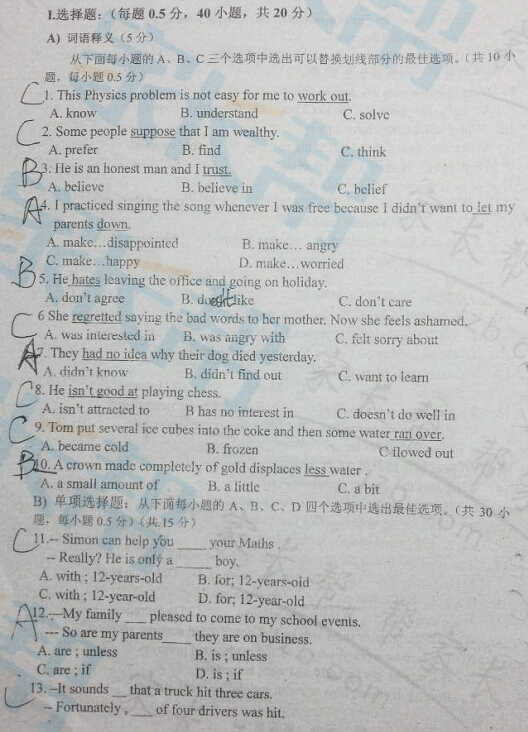 I.选择题:(每题 0.5 分，40 小题，共 20 分)
A) 词语释义(5 分)
从下面每小题的 A、B、C 三个选项中选出可以替换划线部分的最佳选项。(共 10 小
题，每小题 0.5 分)
C 1. This Physics problem is not easy for me to work out.
A. know B. understand C. solve
C 2. Some people suppose that I am wealthy.
A. prefer B. find C. think
B 3. He is an honest man and I trust.
A. believe B. believe in C. belief
A 4. I practiced singing the song whenever I was free because I didn't want to let my
parents down.
A. make…disappointed B. make… angry
C. make…happy D. make…worried
B 5. He hates leaving the office and going on holiday.
A. don't agree B. doesn't like C. don't care
C 6 She regretted saying the bad words to her mother. Now she feels ashamed.
A. was interested in B. was angry with C. felt sorry about
A 7. They had no idea why their dog died yesterday.
A. didn't know B. didn't find out C. want to learn
C 8. He isn't good at playing chess.
A. isn't attracted to B has no interest in C. doesn't do well in
C 9. Tom put several ice cubes into the coke and then some water ran over.
A. became cold B. frozen C flowed out
B 10. A crown made completely of gold displaces less water .
A. a small amount of B. a little C. a bit
B) 单项选择题：从下面每小题的 A、B、C、D 四个选项中选出最佳选项。(共 30 小
题，每小题 0.5 分)(共 15 分)
C 11.-- Simon can help you ____ your Maths .
-- Really? He is only a ____ boy.
A. with ; 12-years-old B. for; 12-years-old
C. with ; 12-year-old D. for; 12-year-old
A 12. —My family ___ pleased to come to my school events.
--- So are my parents____ they are on business.
A. are ; unless B. is ; unless
C. are ; if D. is ; if
C 13. –It sounds __ that a truck hit three cars.
-- Fortunately , ___ of four drivers was hit.